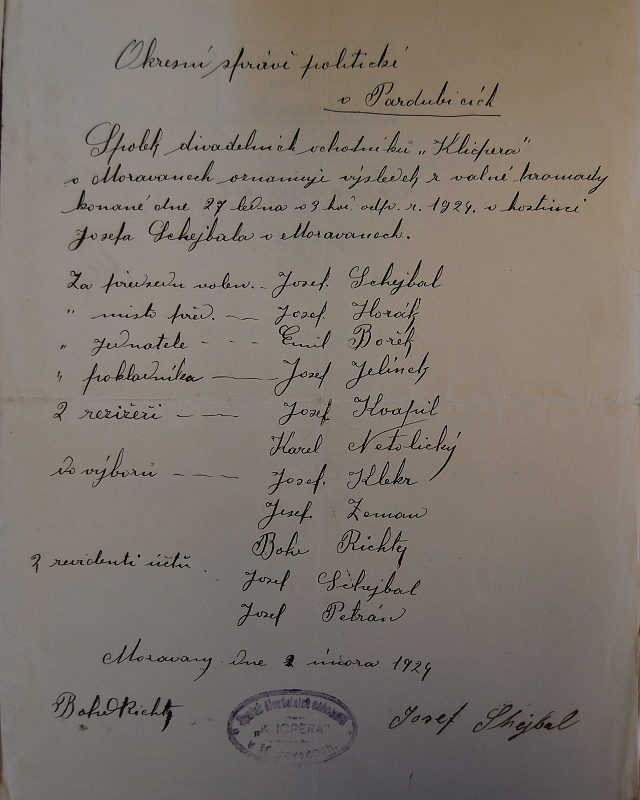 Okresní správě politické
v Pardubicích
Spolek divadelních ochotníků „Klicpera"
v Moravanech oznamuje výsledek z valné hromady
konané dne 27 ledna o 3 hod odp. r. 1924. v hostinci
Josefa Schejbala v Moravanech.
Za předsedu volen. - Josef. Schejbal
" místo před. — Josef. Horák
" jednatele - - - Emil Bořek
" pokladníka — Josef Jelínek
2 režižéři - — Josef Kvapil
Karel Netolický
do výborů - — Josef. Klekr
Josef. Zeman
Bohe Richtr
2 revidenti účtů Josef Schejbal
Josef Petráň
Moravany dne 2 února 1924
Bohe Richtr
Josef Shéjbal
Spolek divadelních ochotníků
„KLICPERA"